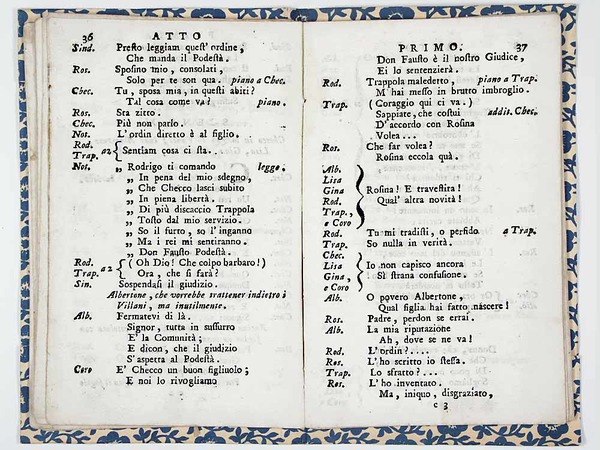 36 ATTO
Sind. Presto leggiam quest' ordine,
Che manda il Podestà.
Ros. Sposino mio, consolati,
Solo per te son qua. piano a Chec.
Chec. Tu, sposa mia, in questi abiti?
Tal cosa come va? piano.
Ros. Sta zitto.
Chec. Più non parlo.
Not. L'ordin diretto è al figlio.
Rod.
Trap. a2 { Sentiam cosa ci sta..
Not. „ Rodrigo ti comando legge.
„ In pena del mio sdegno,
„ Che Checco lasci subito
„ In piena libertà.
„ Di più discaccio Trappola
„ Tosto dal mio servizio.
„ So il furto, so l'inganno
„ Ma i rei mi sentiranno.
„ Don Fausto Podestà.
Rod. { ( Oh Dio! Che colpo barbaro!)
Trap. a2 { Ora, che si farà?
Sin. Sospendasi il giudizio.
Albertone, che vorrebbe trattener indietro i
Villani, ma inutilmente.
Alb. Fermatevi di là.
Signor, tutta in sussurro
E' la Comunità;
E dicon, che il giudizio
S'aspetta al Podestà.
Coro E' Checco un buon figliuolo;
E noi lo rivogliamo
PRIMO. 37
Don Fausto è il nostro Giudice,
Ei lo sentenzierà.
Rod. Trappola maledetto, piano a Trap.
M'hai messo in brutto imbroglio.
Trap. ( Coraggio qui ci va. )
Sappiate, che costui addit. Chec.
D'accordo con Rosina
Volea...
Ros. Che far volea?
Rosina eccola quà.
Alb.
Lisa
Gina
Rod.
Trap.,
e Coro } Rosina! E travestita!
Qual' altra novità!
Rod. Tu mi tradisti, o perfido a Trap.
Trap. So nulla in verità.
Chec.
Lisa
Gina,
e Coro } Io non capisco ancora
Sì strana confusione.
Alb. O povero Albertone,
Qual figlia hai fatto nascere!
Ros. Padre, perdon se errai.
Alb. La mia riputazione
Ah, dove se ne va!
Rod. L'ordin?....
Ros. L'ho scritto io stessa.
Trap. Lo sfratto?...
Ros. L'ho inventato.
Ma, iniquo, disgraziato,
c 3